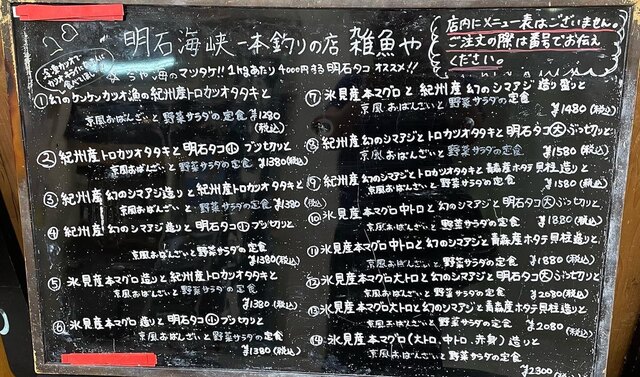 明石海峡一本釣りの店 雑魚や
店内にメニュー表はございません。
ご注文の際は番号でお伝え
ください。
海のマツタケ!! 1kgあたり4000円する 明石タコ オススメ!!
①幻のケンケンカツオ漁の紀州産トロカツオタタキと
京風おばんざいと野菜サラダの定食 ¥1280(税込)
②紀州産トロカツオタタキと明石タコ小ブツ切りと
京風おばんざいと野菜サラダの定食 ¥1380(税込)
③紀州産幻のシマアジ造りと紀州産トロカツオタタキと
京風おばんざいと野菜サラダの定食 ¥1380(税込)
④紀州産幻のシマアジ造りと明石タコ小ブツ切りと
京風おばんざいと野菜サラダの定食 ¥1380(税込)
⑤氷見産本マグロ造りと紀州産トロカツオタタキと
京風おばんざいと野菜サラダの定食 ¥1380(税込)
⑥氷見産本マグロ造りと明石タコ小ブツ切りと
京風おばんざいと野菜サラダの定食 ¥1380(税込)
⑦氷見産本マグロと紀州産幻のシマアジ造り盛りと
京風おばんざいと野菜サラダの定食 ¥1480(税込)
⑧紀州産幻のシマアジとトロカツオタタキと明石タコ大ぶつ切りと
京風おばんざいと野菜サラダの定食 ¥1580(税込)
⑨紀州産幻のシマアジとトロカツオタタキと青森産ホタテ貝柱造りと
京風おばんざいと野菜サラダの定食 ¥1580(税込)
⑩氷見産本マグロ中トロと幻のシマアジと明石タコ大ぶつ切りと
京風おばんざいと野菜サラダの定食 ¥1880(税込)
⑪氷見産本マグロ中トロと幻のシマアジと青森産ホタテ貝柱造りと
京風おばんざいと野菜サラダの定食 ¥1880(税込)
⑫氷見産本マグロ大トロと幻のシマアジと明石タコ大ぶつ切りと
京風おばんざいと野菜サラダの定食 ¥2080(税込)
⑬氷見産本マグロ大トロと幻のシマアジと青森産ホタテ貝柱造りと
京風おばんざいと野菜サラダの定食 ¥2080(税込)
⑭氷見産本マグロ(大トロ、中トロ、赤身)造りと
京風おばんざいと野菜サラダの定食 ¥2300(税込)